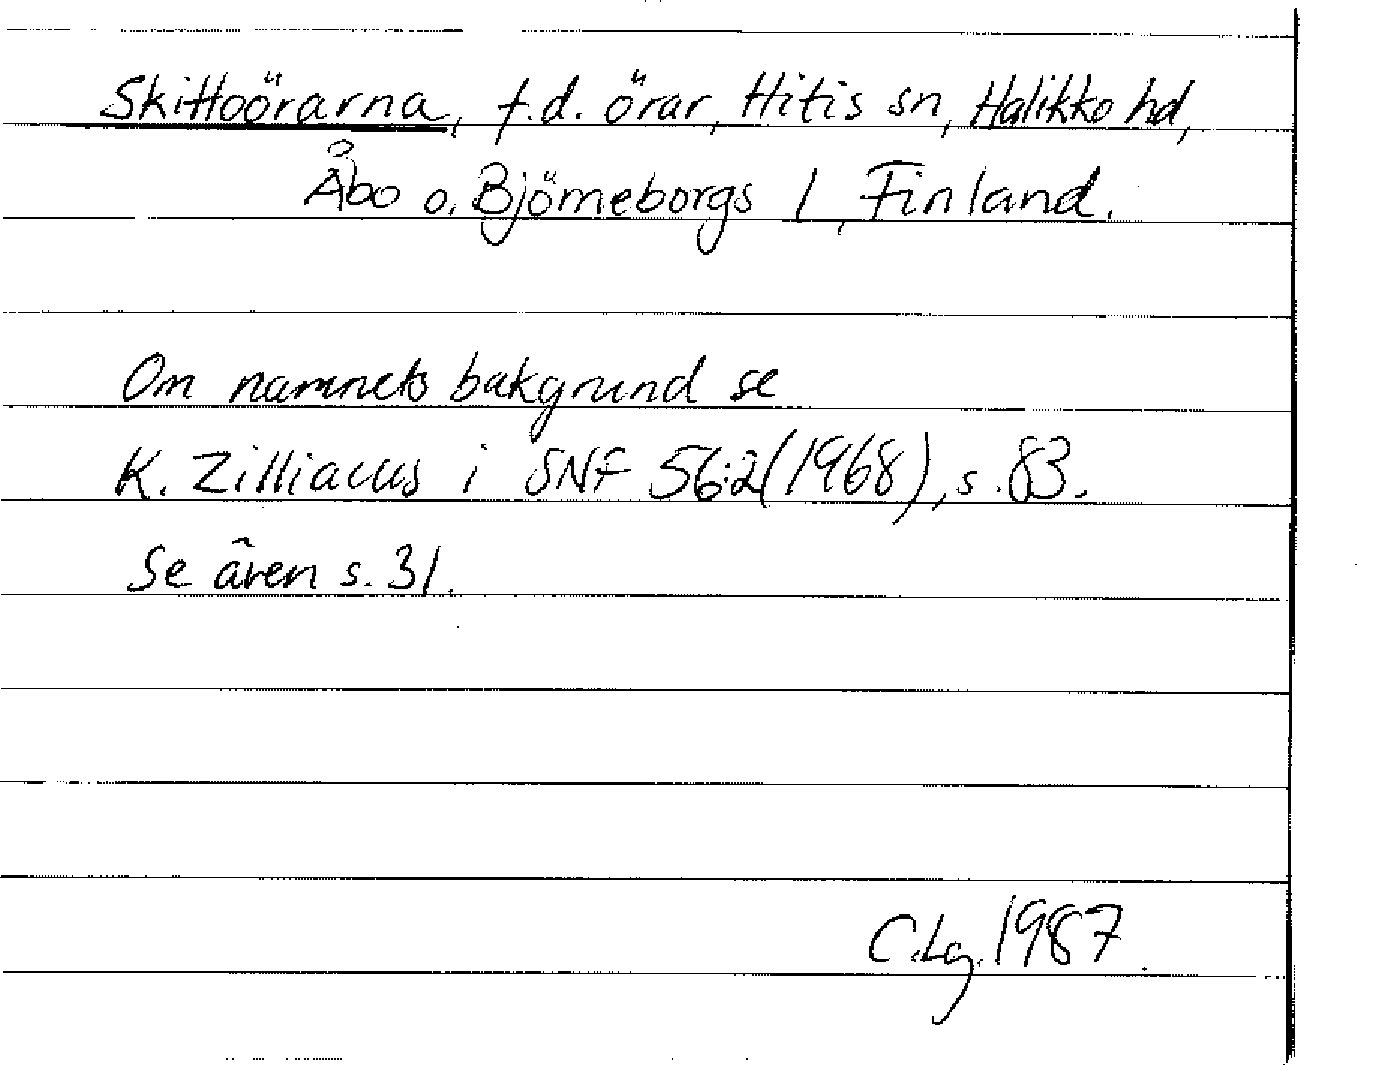 Skittoörarna, f.d. örar, Hitis sn, Halikko hd,
Åbo o. Björneborgs l, Finland.
Om namnets bakgrund se
K. Zilliacus i SNF 56:2 (1968), s. 83.
Se även s. 31.
C.Lg. 1987.